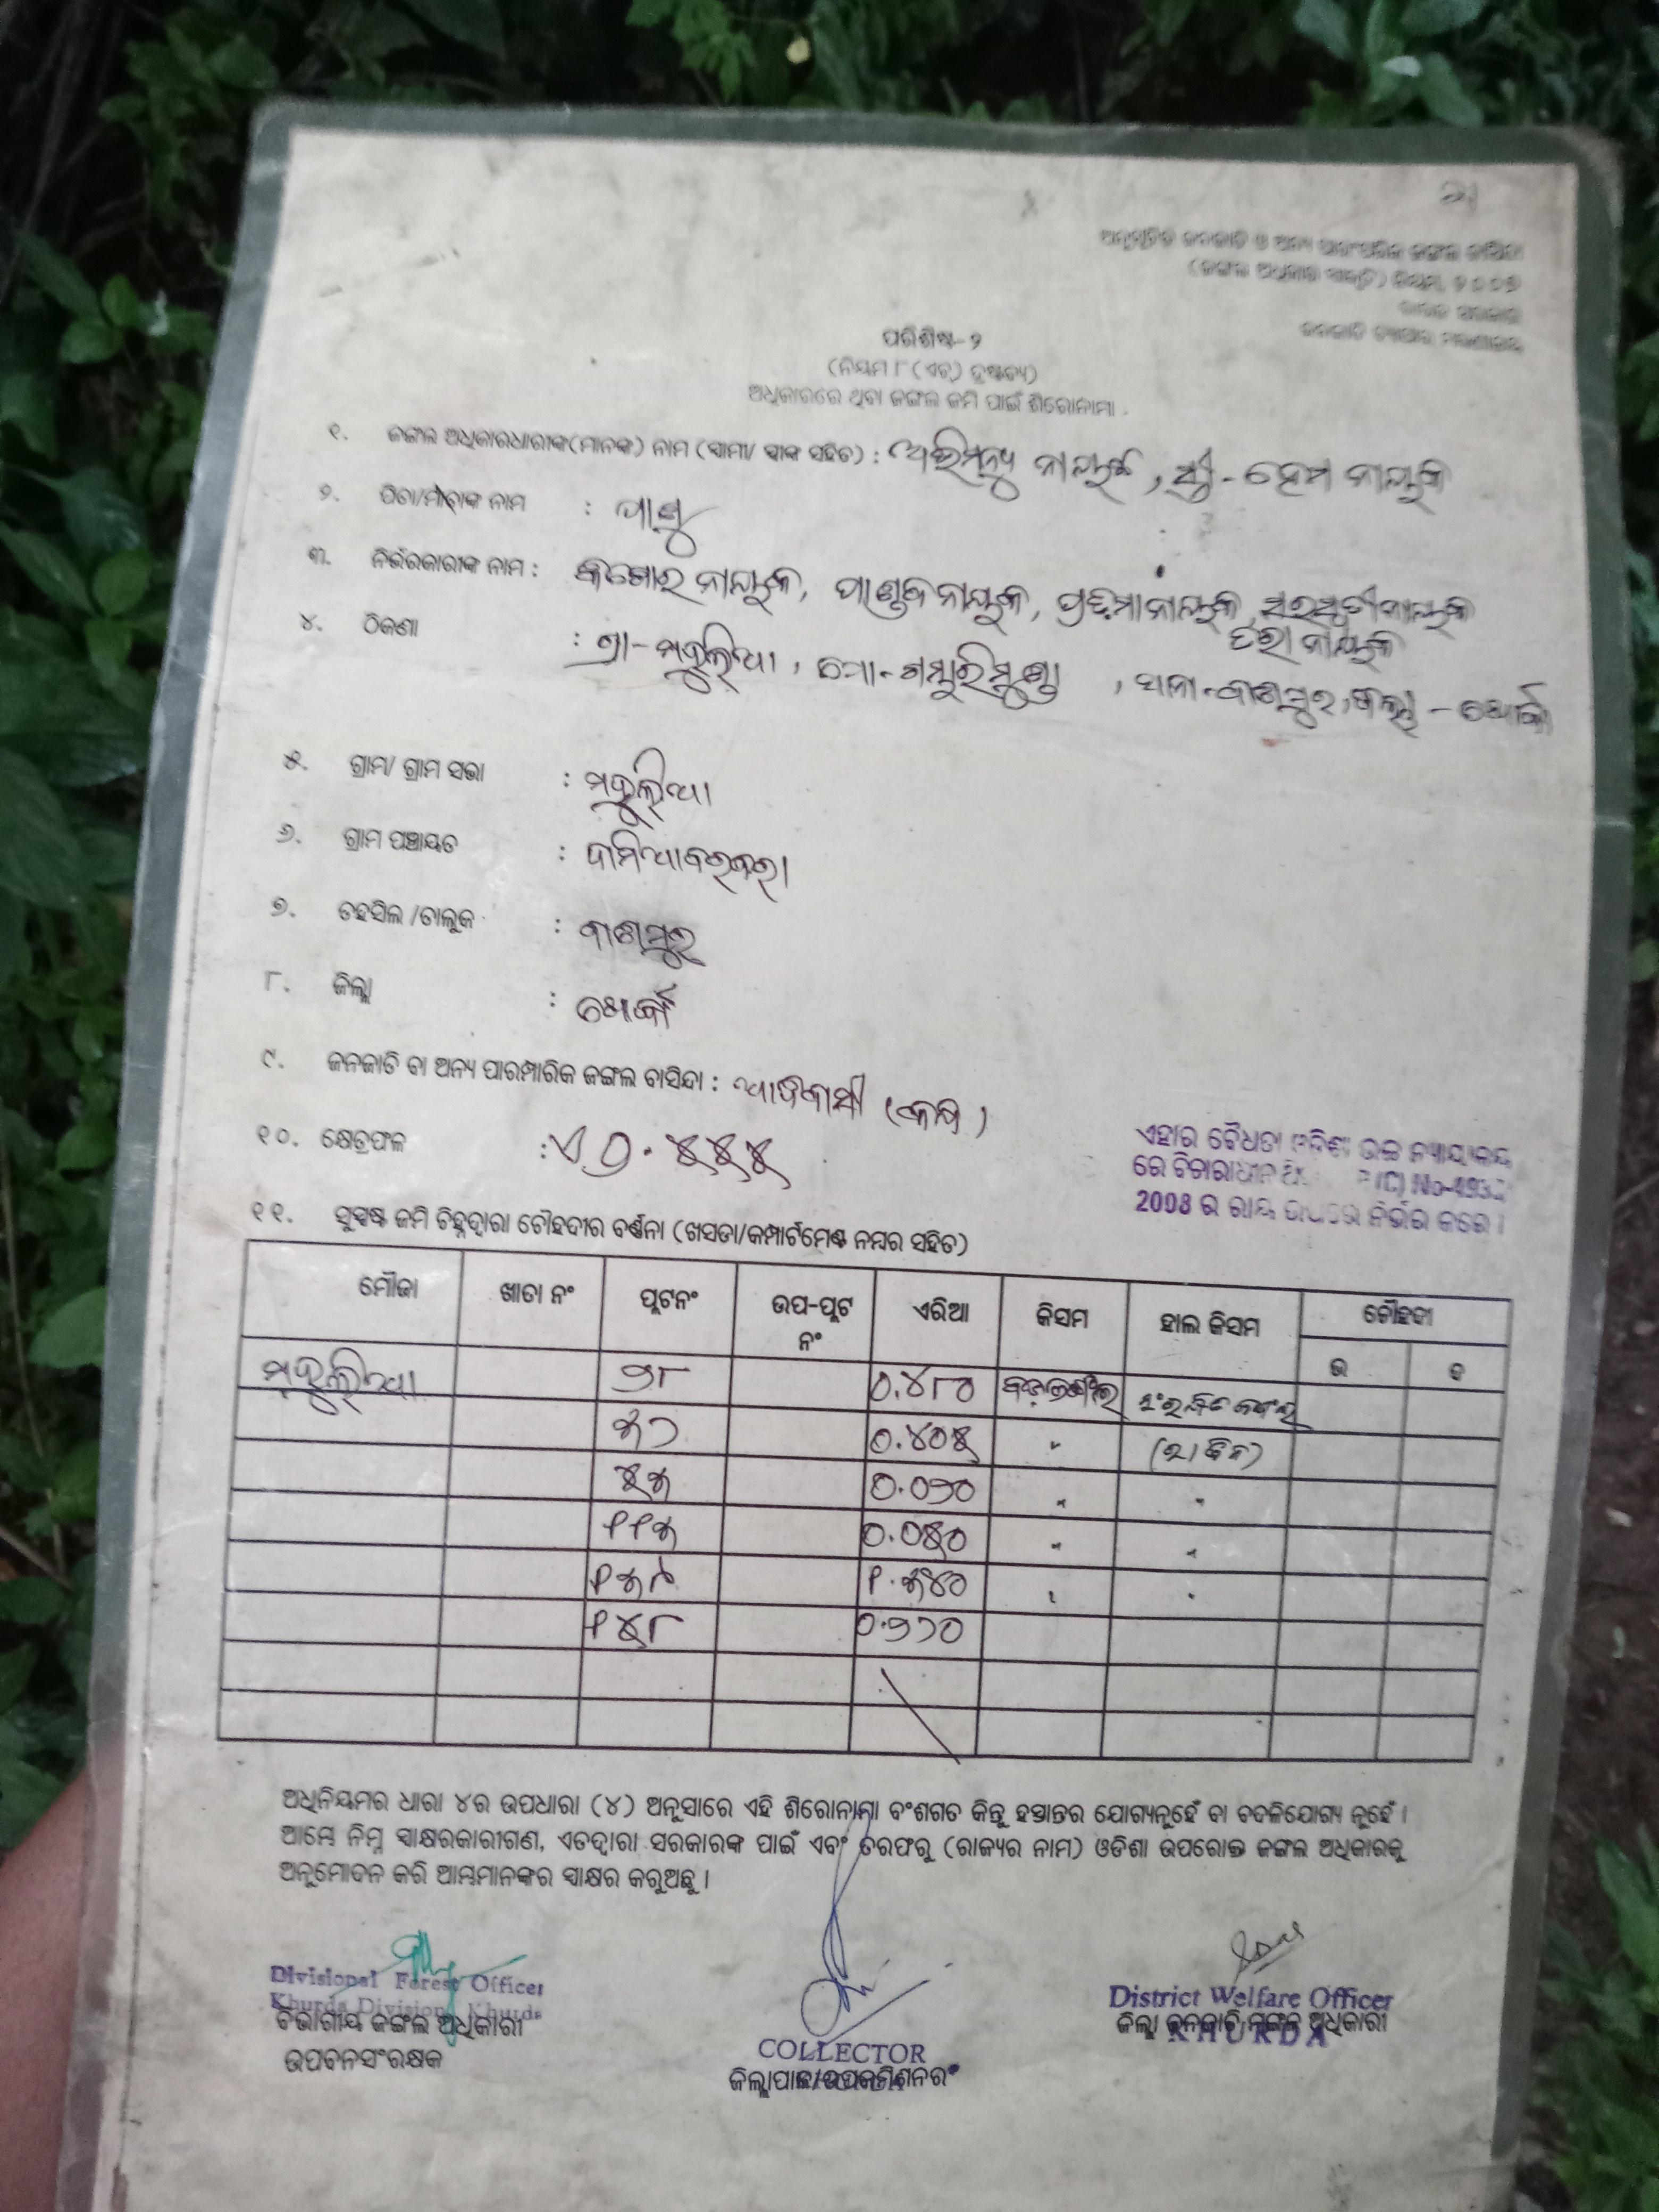 ଅନୁସୂଚିତ ଜନଜାତି ଓ ଅନ୍ୟ ପାରଂପରିକ ଜଙ୍ଗଲ ବାସିନ୍ଦା
(ଜଙ୍ଗଲ ଅଧିକାର ସ୍ୱୀକୃତି) ନିୟମ, ୨୦୦୭
ଭାରତ ସରକାର
ଜନଜାତି ବ୍ୟାପାର ମନ୍ତ୍ରଣାଳୟ
ପରିଶିଷ୍ଟ-୨
(ନିୟମ ୮ (ଏଚ୍) ଦ୍ରଷ୍ଟବ୍ୟ)
ଅଧିକାରରେ ଥିବା ଜଙ୍ଗଲ ଜମି ପାଇଁ ଶିରୋନାମା .
୧. ଜଙ୍ଗଲ ଅଧିକାରଧାରୀଙ୍କ(ମାନଙ୍କ) ନାମ (ସ୍ୱାମୀ/ ସ୍ତ୍ରୀଙ୍କ ସହିତ) : ଅଭିମନ୍ୟୁ ନାୟକ, ସ୍ତ୍ରୀ- ହେମ ନାୟକ
୨. ପିତା/ମାତାଙ୍କ ନାମ : ପାଣ୍ଡୁ
୩. ନିର୍ଭରକାରୀଙ୍କ ନାମ : କିଶୋର ନାୟକ, ପାଣ୍ଡବ ନାୟକ, ନାୟକ, ସରସ୍ୱତୀ ନାୟକ
ନାୟକ
୪. ଠିକଣା : ଗ୍ରା- ମହୁଲିଆ, ପୋ- ଗମ୍ଭାରିମୁଣ୍ଡା, ଥାନା- ବାଣପୁର, ଜିଲ୍ଲା - ଖୋର୍ଦ୍ଧା
୫. ଗ୍ରାମ/ ଗ୍ରାମ ସଭା : ମହୁଲିଆ
୬. ଗ୍ରାମ ପଞ୍ଚାୟତ : ଦାମିଆବରବରା
୭. ତହସିଲ /ତାଲୁକ : ବାଣପୁର
୮. ଜିଲ୍ଲା : ଖୋର୍ଦ୍ଧା
୯. ଜନଜାତି ବା ଅନ୍ୟ ପାରମ୍ପାରିକ ଜଙ୍ଗଲ ବାସିନ୍ଦା : ଆଦିବାସୀ (କନ୍ଧ)
୧୦. କ୍ଷେତ୍ରଫଳ : ଏ ୦.୫୫୫
ଏହାର ବୈଧତା ଓଡିଶା ଉଚ୍ଚ ନ୍ୟାୟାଳୟ
ରେ ବିଚାରାଧୀନ (C) No-493
2008 ର ରାୟ ଉପରେ ନିର୍ଭର କରେ ।
୧୧. ସୁସ୍ପଷ୍ଟ ଜମି ଚିହ୍ନଦ୍ୱାରା ଚୌହଦୀର ବର୍ଣ୍ଣନା (ଖସଡା/କମ୍ପାର୍ଟମେଣ୍ଟ ନମ୍ବର ସହିତ)
ମୌଜା ଖାତା ନଂ ପ୍ଲଟନଂ ଉପ-ପ୍ଲଟ ନଂ ଏରିଆ କିସମ ହାଲ କିସମ ଚୌହଦୀ
ଉ ଦ
ମହୁଲିଆ ୭୮ ୦.୪୮୦ ସଂରକ୍ଷିତ ଜଙ୍ଗଲ
୬୨ ୦.୪୦୫ " (ରାକ୍ଷିତ)
୫୬ ୦.୦୭୦ " "
୧୧୬ ୦.୦୫୦ " "
୧୬୯ ୧.୬୪୦ " "
୧୪୮ ୦.୭୨୦
ଅଧିନିୟମର ଧାରା ୪ର ଉପଧାରା (୪) ଅନୁସାରେ ଏହି ଶିରୋନାମା ବଂଶଗତ କିନ୍ତୁ ହସ୍ତାନ୍ତର ଯୋଗ୍ୟନୁହେଁ ବା ବଦଳିଯୋଗ୍ୟ ନୁହେଁ ।
ଆମ୍ଭେ ନିମ୍ନ ସ୍ୱାକ୍ଷରକାରୀଗଣ, ଏତଦ୍ୱାରା ସରକାରଙ୍କ ପାଇଁ ଏବଂ ତରଫରୁ (ରାଜ୍ୟର ନାମ) ଓଡିଶା ଉପରୋକ୍ତ ଜଙ୍ଗଲ ଅଧିକାରକୁ
ଅନୁମୋଦନ କରି ଆମ୍ଭମାନଙ୍କର ସ୍ୱାକ୍ଷର କରୁଅଛୁ ।
Divisional Forest Officer
Khurda Division, Khurda
ବିଭାଗୀୟ ଜଙ୍ଗଲ ଅଧିକାରୀ
ଉପବନସଂରକ୍ଷକ
COLLECTOR
ଜିଲ୍ଲାପାଳ/ଉପକମିଶନର
District Welfare Officer
ଜିଲ୍ଲା ଜନଜାତି ମଙ୍ଗଳ ଅଧିକାରୀ
KHURDA